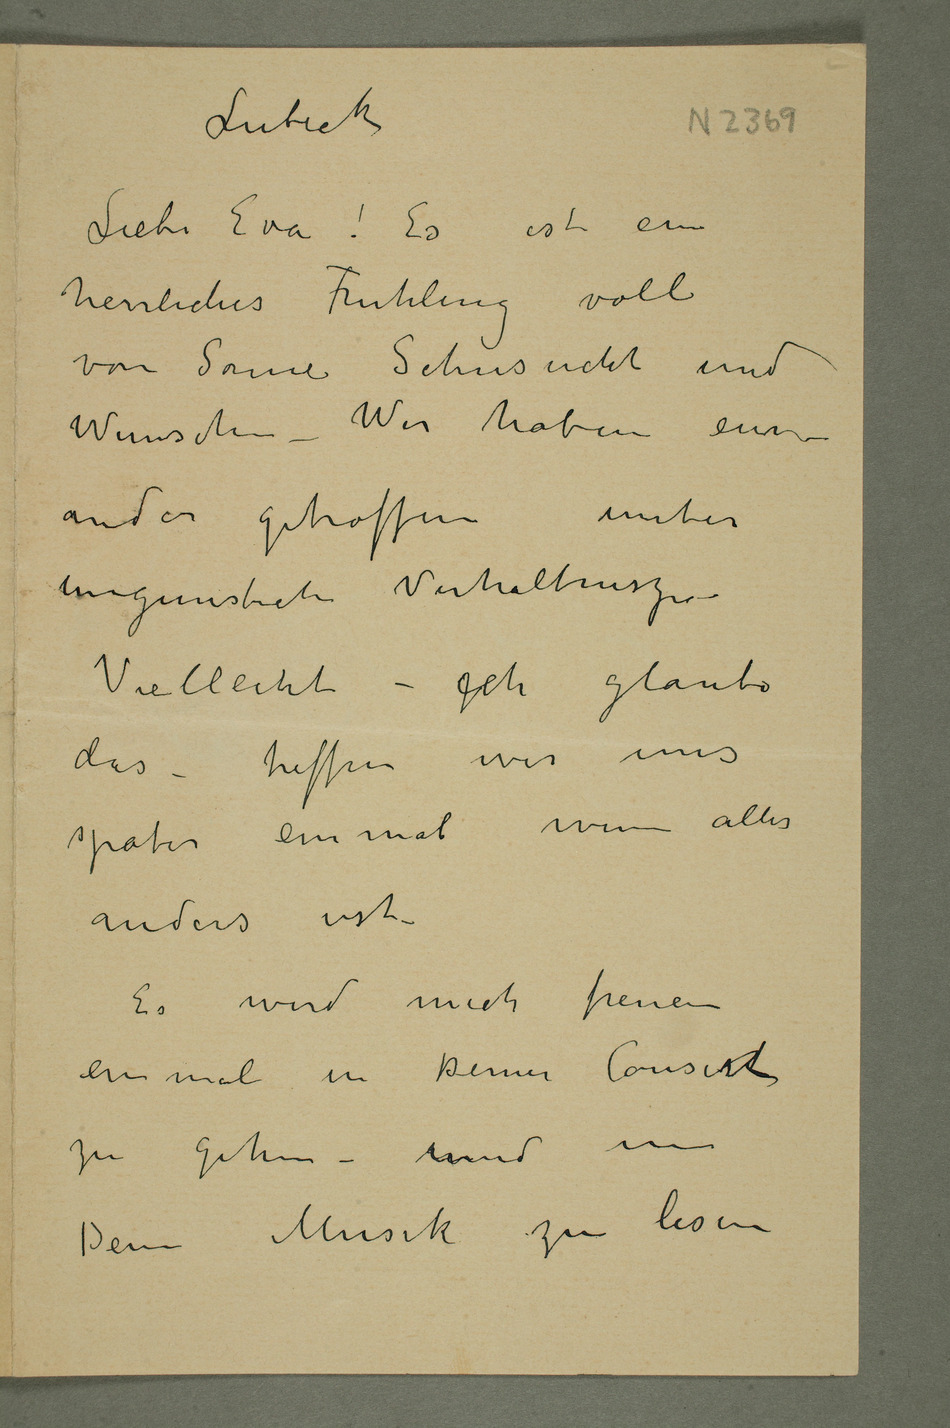 Lubeck
N 2369
Liebe Eva! Es ist ein
herrliches Fruhling voll
von Sonne Sehnsucht und
Wunschen – Wir haben ein
ander getroffen unter
ungunstiche Verhaltnisze –
Vielleicht – ich glaube
das – treffen wir uns
spater ein mal wenn alles
anders ist –
Es wird mich freuen
ein mal in Deiner Consert
zu gehen – und in
Dein Musik zu lesen